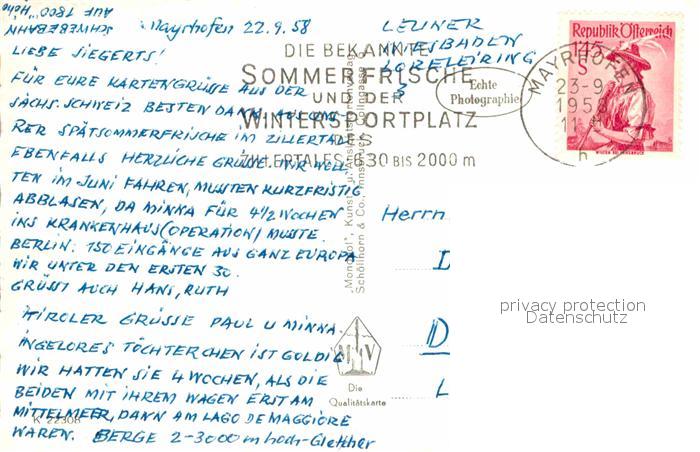 AUF 1800 m Höhe
SCHWEBEBAHN
Mayrhofen 22.9.58
LIEBE SIEGERTS!
FÜR EURE KARTENGRÜSSE AUS DER
SÄCHS. SCHWEIZ BESTEN DANK. AUS
RER SPÄTSOMMERFRISCHE IM ZILLERTAL
EBENFALLS HERZLICHE GRÜSSE. WIR WOLL
TEN IM JUNI FAHREN, MUSSTEN KURZFRISTIG
ABBLASEN, DA MINKA FÜR 4½ WOCHEN
INS KRANKENHAUS (OPERATION) MUSSTE.
BERLIN: 150 EINGÄNGE AUS GANZ EUROPA
WIR UNTER DEN ERSTEN 30.
GRÜSST AUCH HANS, RUTH
TIROLER GRÜSSE PAUL U MINKA.
INGELORES TÖCHTERCHEN IST GOLDIG
WIR HATTEN SIE 4 WOCHEN, ALS DIE
BEIDEN MIT IHREM WAGEN ERST AM
MITTELMEER, DANN AM LAGO DE MAGGIORE
WAREN. BERGE 2-3000 m hoch-Gletcher
K 22308
LEUNER
WIESBADEN
LORELEIRING
3
DIE BEKANNTE
SOMMERFRISCHE
UND DER
WINTERSPORTPLATZ
DES
ZILLERTALES 630 BIS 2000 m
Echte
Photographie
MAYRHOFEN
23-9
1958
11
h
Republik Österreich
1.45
S
"Mondial", Kunst- u.
Schöllhorn & Co., Innsbruck,
Herrn
D
L
M V
Die
Qualitätskarte
privacy protection
Datenschutz